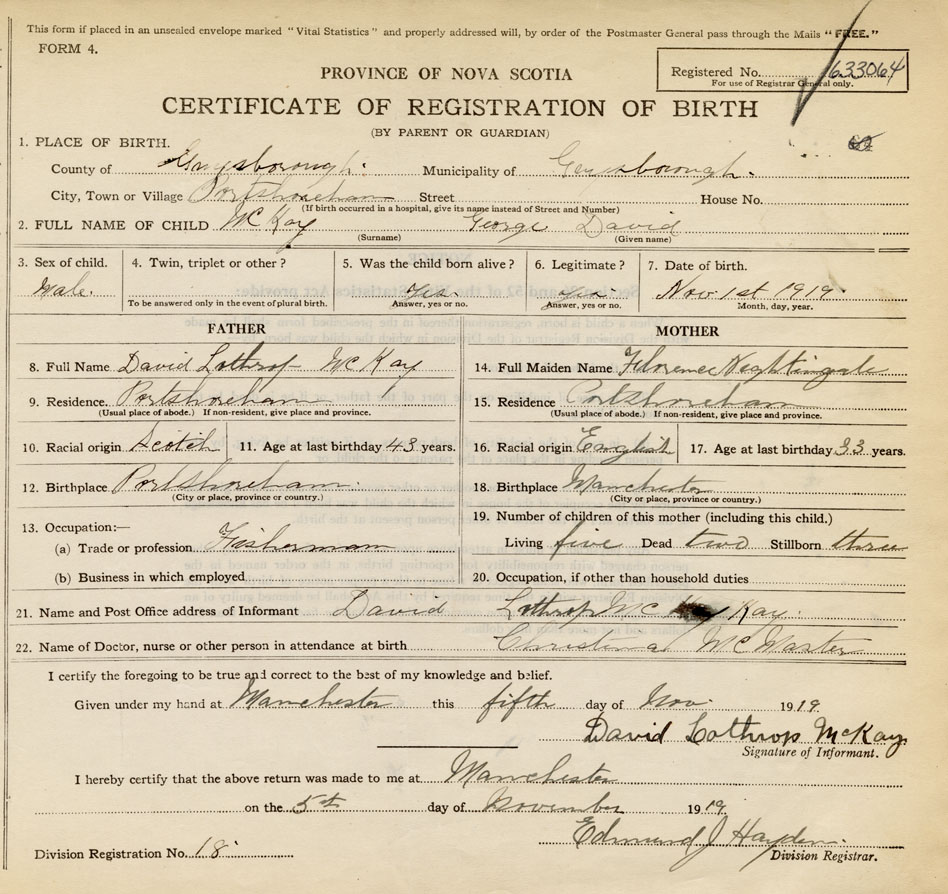 This form if placed in an unsealed envelope marked "Vital Statistics" and properly addressed will, by order of the Postmaster General pass through the Mails "FREE."
FORM 4.
PROVINCE OF NOVA SCOTIA
Registered No. 633064
For use of Registrar General only.
CERTIFICATE OF REGISTRATION OF BIRTH
(BY PARENT OR GUARDIAN)
1. PLACE OF BIRTH.
County of Guysborough. Municipality of Guysborough.
City, Town or Village Portshoreham Street House No.
(If birth occurred in a hospital, give its name instead of Street and Number)
2. FULL NAME OF CHILD McKay George David
(Surname) (Given name)
3. Sex of child. 4. Twin, triplet or other? 5. Was the child born alive? 6. Legitimate? 7. Date of birth.
Male. Yes. Yes Nov 1st 1919.
To be answered only in the event of plural birth. Answer, yes or no. Answer, yes or no. Month, day, year.
FATHER
8. Full Name David Lothrop McKay
9. Residence. Portshoreham
(Usual place of abode.) If non-resident, give place and province.
10. Racial origin Scotch 11. Age at last birthday 43 years.
12. Birthplace Portshoreham.
(City or place, province or country.)
13. Occupation:—
(a) Trade or profession Fisherman
(b) Business in which employed
MOTHER
14. Full Maiden Name Florence Nightingale
15. Residence Portshoreham
(Usual place of abode.) If non-resident, give place and province.
16. Racial origin English 17. Age at last birthday 33 years.
18. Birthplace Manchester
(City or place, province or country.)
19. Number of children of this mother (including this child.)
Living five Dead two Stillborn three
20. Occupation, if other than household duties
21. Name and Post Office address of Informant David Lothrop Mc Kay.
22. Name of Doctor, nurse or other person in attendance at birth Christena McMaster
I certify the foregoing to be true and correct to the best of my knowledge and belief.
Given under my hand at Manchester this fifth day of Nov. 1919.
David Lothrop McKay
Signature of Informant.
I hereby certify that the above return was made to me at Manchester
on the 5th day of November 1919.
Edmund J Hayden.
Division Registration No. 18. Division Registrar.